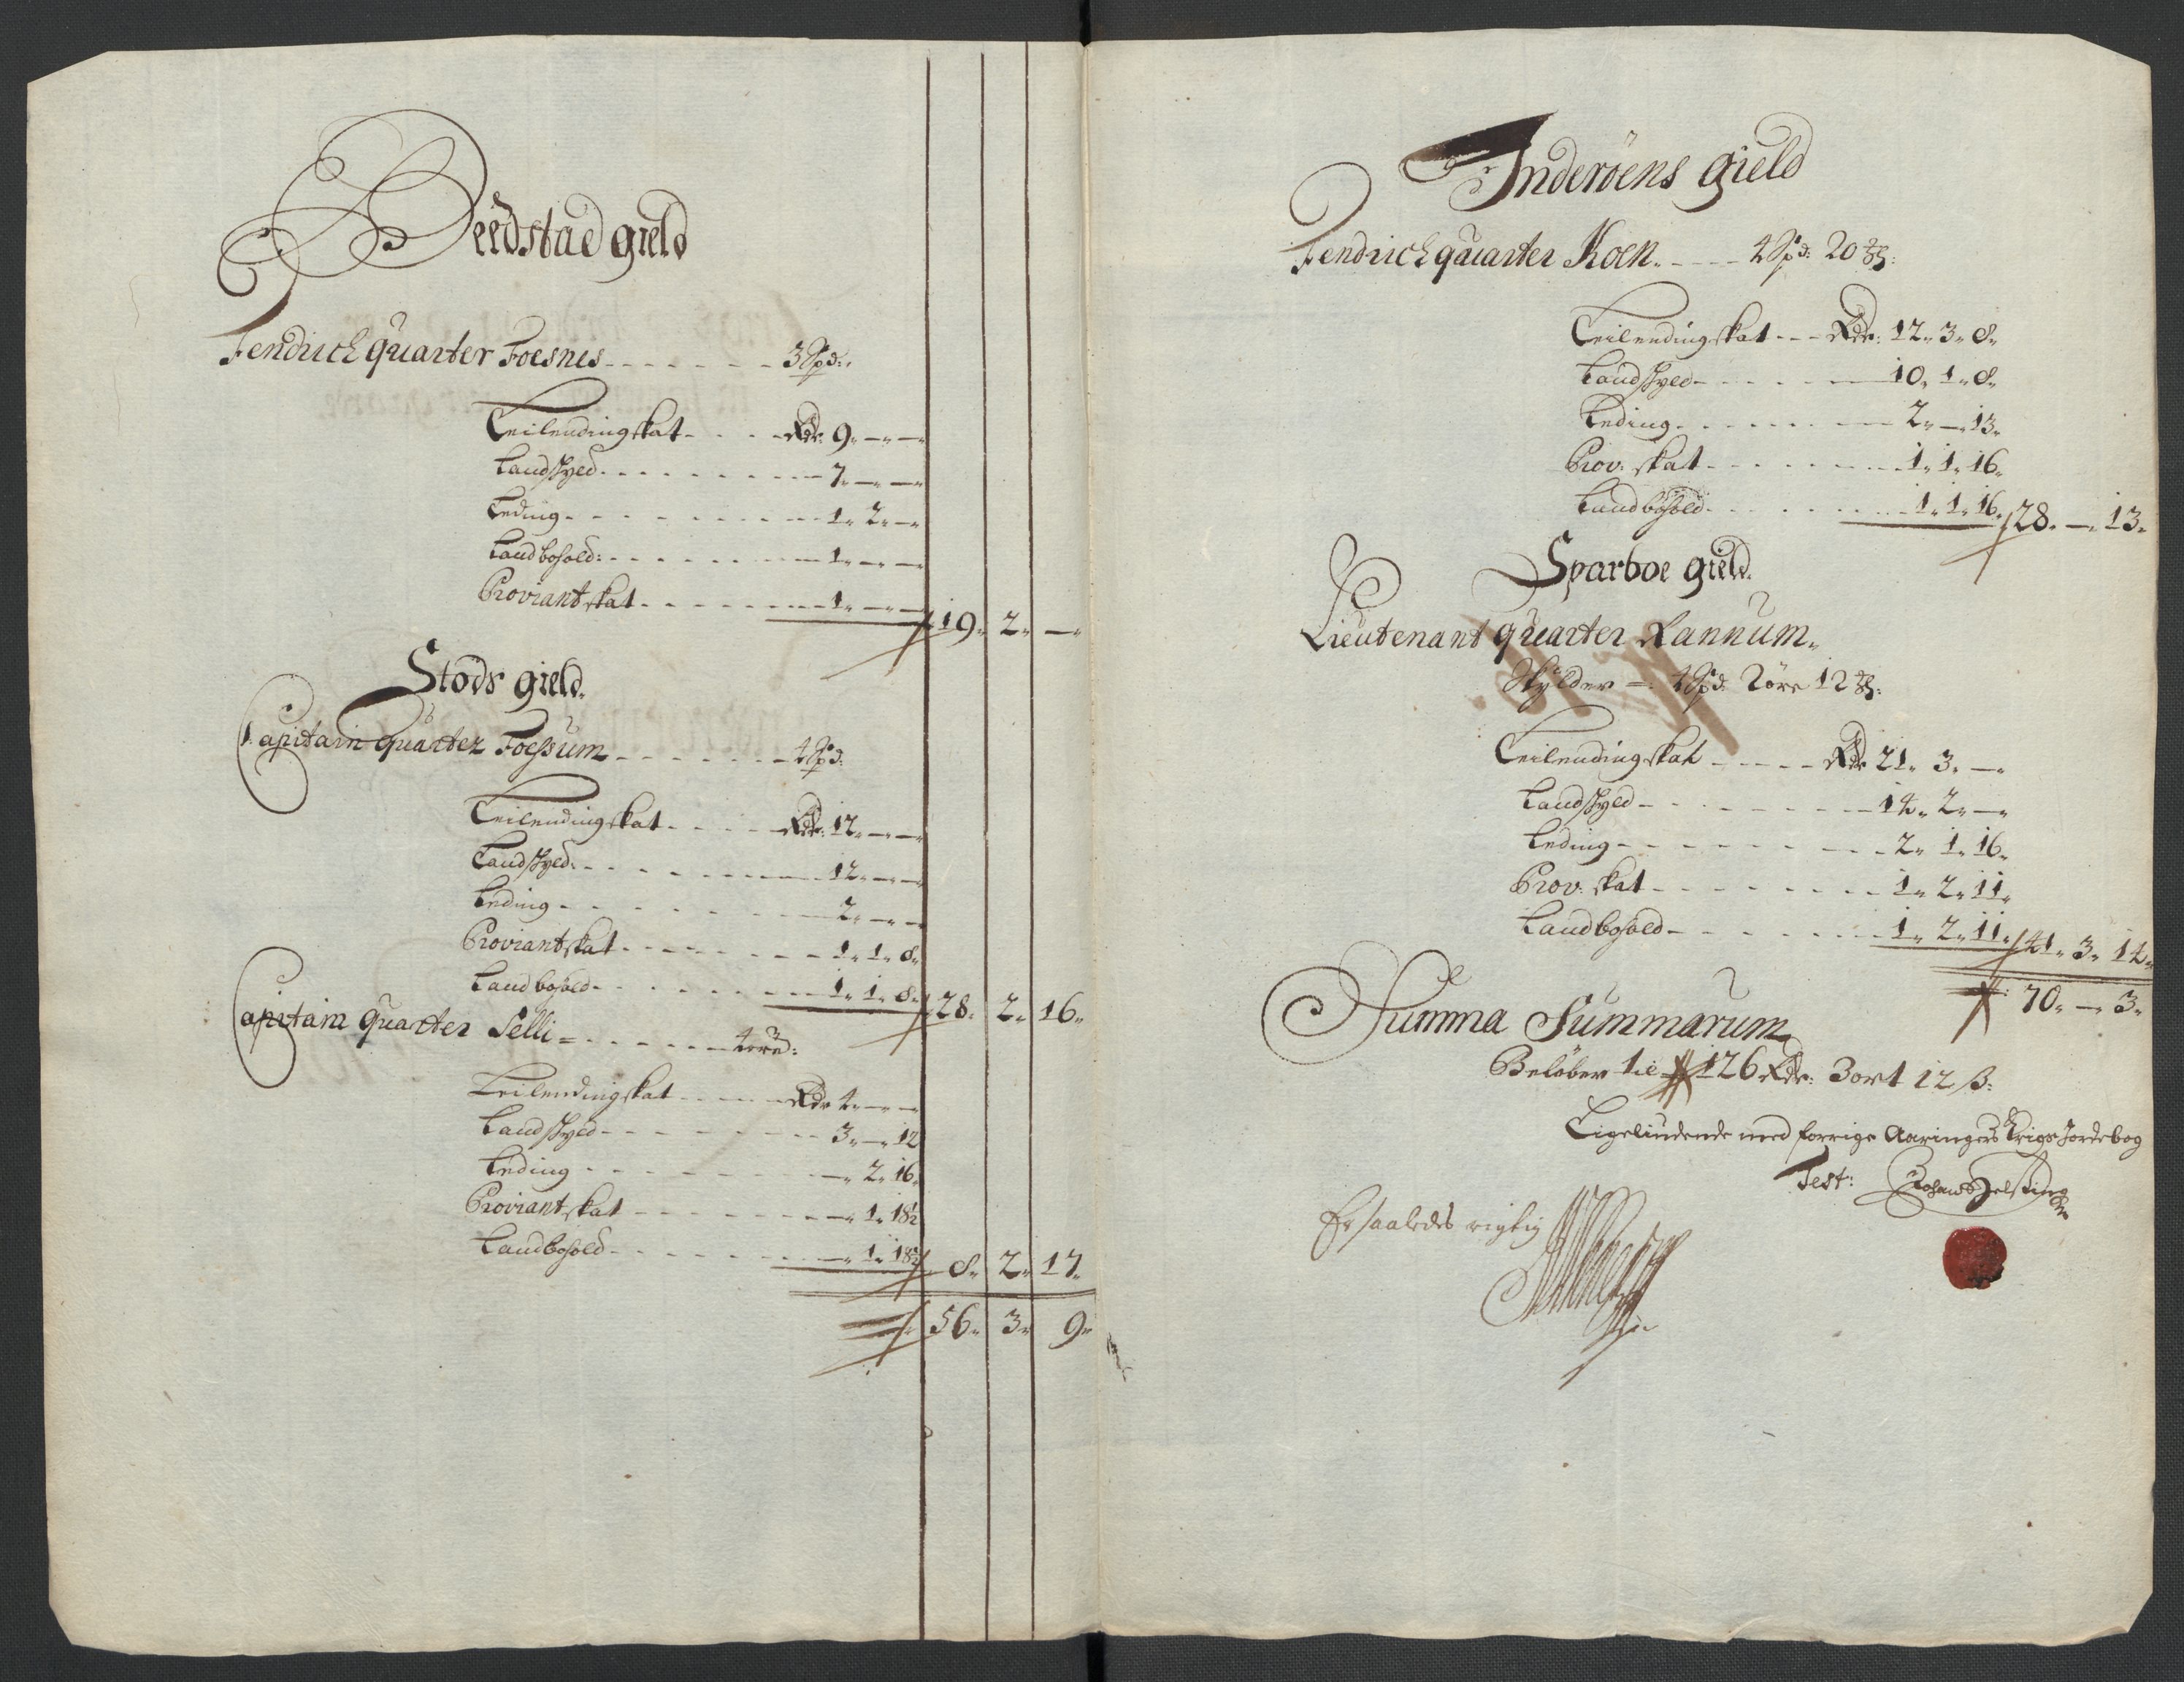 Beedstad gield
Fendrich quarter Foesnes - - - - - - - 3 Spd:
Leilendingskat - - - - Rdr: 9 - " - "
Landskyld - - - - - - - - 7 " - " - "
Leding - - - - - - - - - 1 " 2 " - "
Landbohold: - - - - - - - - 1 " - " - "
Proviantskat - - - - - - - 1 " - " - " 19 " 2 " - "
Stods gield
Capitain quarter Foessum - - - - - - - 4 Spd:
Leilendingskat - - - - Rdr: 12 " - " - "
Landskyld - - - - - - - - 12 " - " - "
Leding - - - - - - - - 2 " - " - "
Proviantskat - - - - - - - 1 " 1 " 8 "
Landbohold - - - - - - - 1 " 1 " 8 " 28 " 2 " 16 "
Capitain quarter Selli = - - - - - - 4 øre:
Leilendingskat - - - - Rdr 4 " - " - "
Landskyld - - - - - - - 3 " - " 12
Leding - - - - - - - - " 2 " 16 "
Proviantskat - - - - - - - " 1 " 18½
Landbohold - - - - - - - " 1 " 18½ 8 " 2 " 17 "
56 " 3 " 9 "
Inderöens gield
Fendrich quarter Koen - - - - 4 Spd: 20 mkl:
Leilendingskat - - - Rdr: 12 " 3 " 8 "
Landskyld - - - - - - 10 " 1 " 8 "
Leding - - - - - - - 2 " - " 13 "
Prov: skat - - - - - - - 1 " 1 " 16 "
Landbohold - - - - - - - 1 " 1 " 16 " 28 " - " 13 "
Sparboe gield
Lieutenant quarter Rannum "
Skylder =: 4 Spd: 2 øre 12 mkl:
Leilendingskat - - - - - Rdr 21 " 3 " - "
Landskyld - - - - - - - 14 " 2 " - "
Leding - - - - - - - - 2 " 1 " 16 "
Prov: skat - - - - - - - 1 " 2 " 11 "
Landbohold - - - - - - - 1 " 2 " 11 " 41 " 3 " 14 "
70 " - " 3 "
Summa Summarum
Beløber til 126 Rdr: 3 ort 12 ß:
Ligeliudende med forrige Aaringers Krigs Jordebog
Test:
Er saaledes rigtig